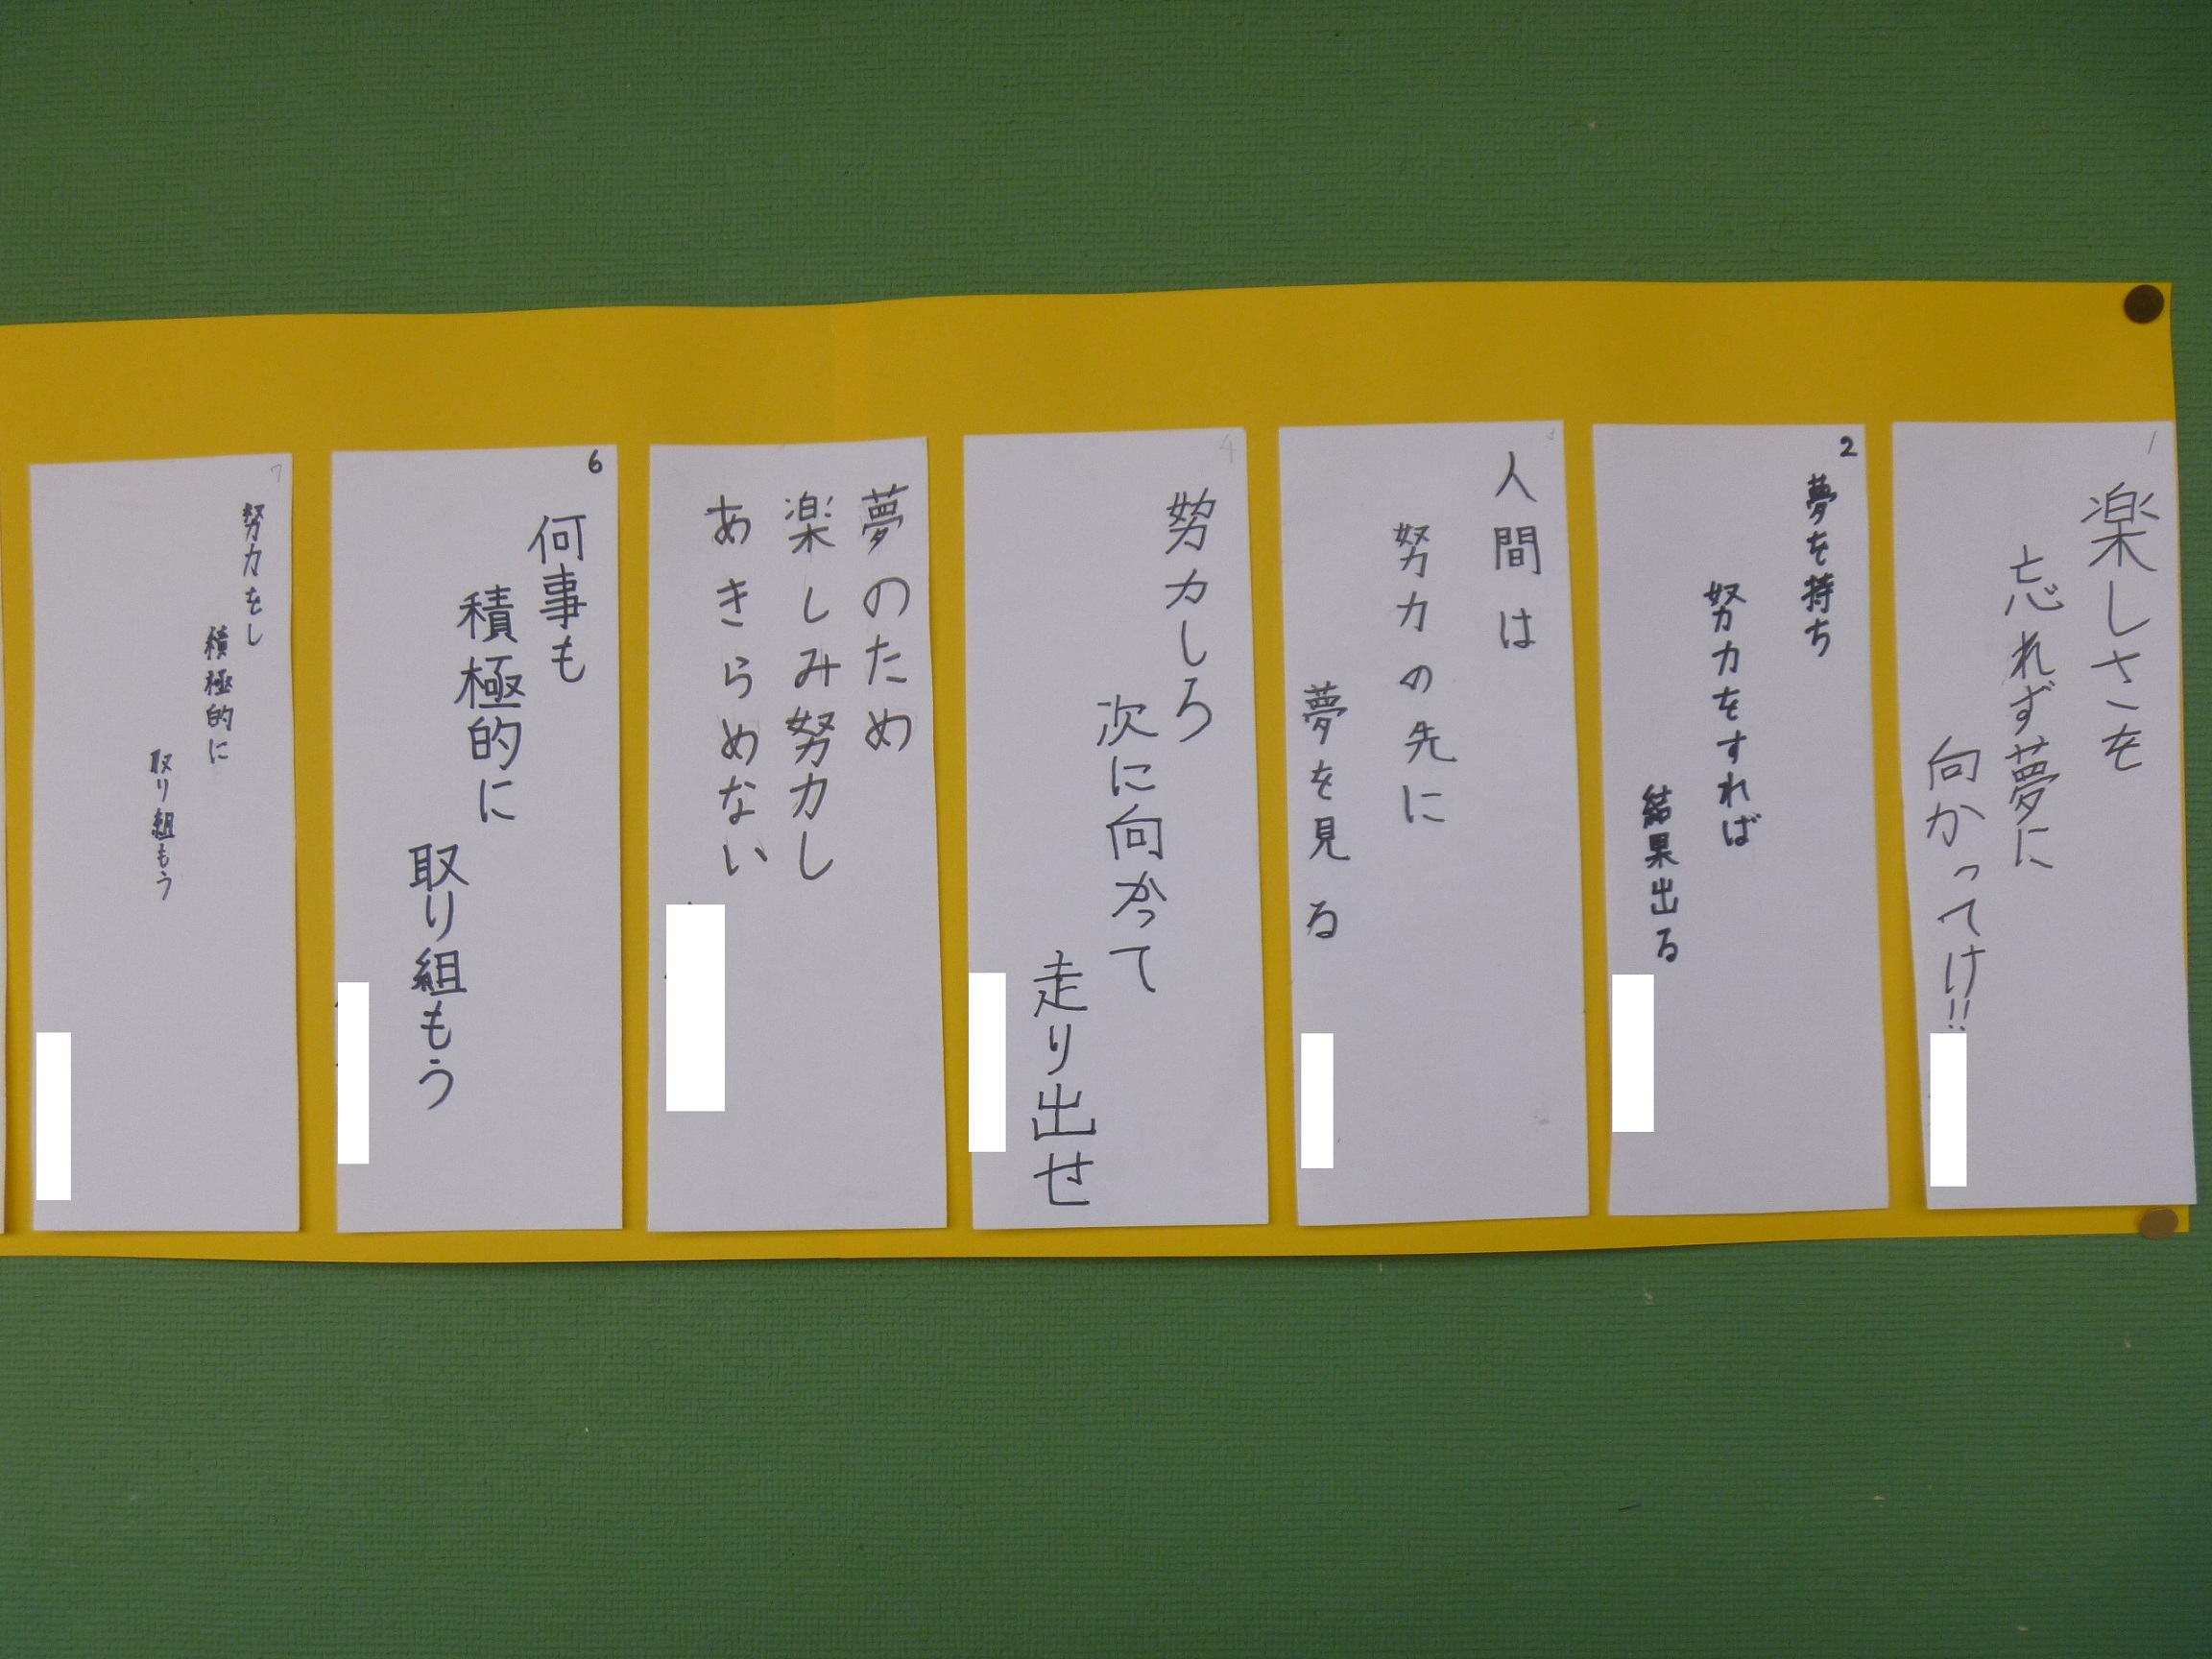 1
楽しさを
忘れず夢に
向かってけ!!
2
夢を持ち
努力をすれば
結果出る
3
人間は
努力の先に
夢を見る
4
努力しろ
次に向かって
走り出せ
夢のため
楽しみ努力し
あきらめない
6
何事も
積極的に
取り組もう
7
努力をし
積極的に
取り組もう